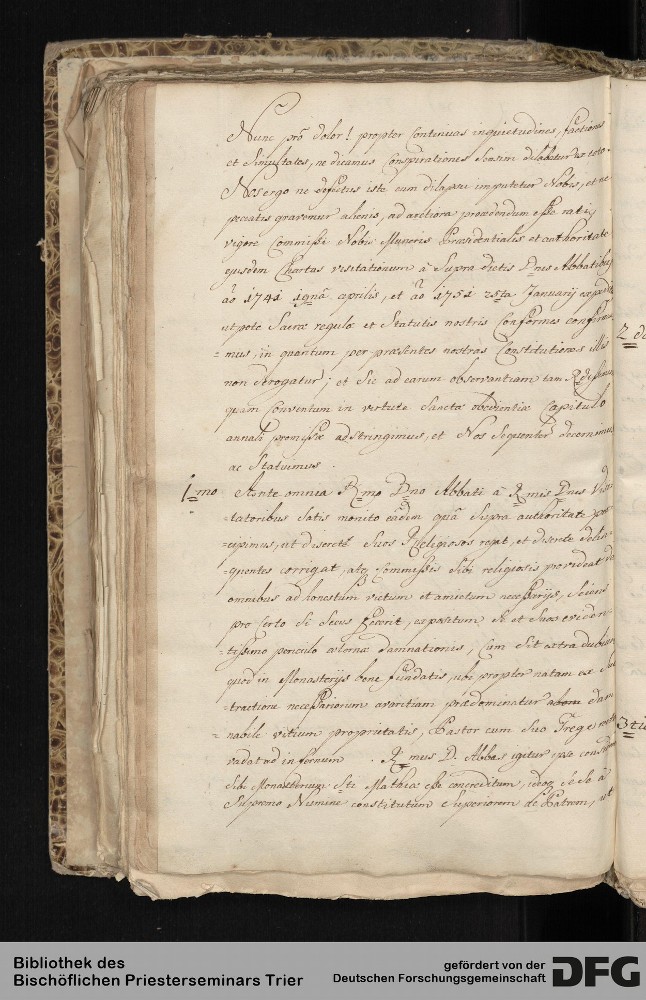 Nunc prõ dolor! propter Continuas inquietudines, factiones
et Simultates, ne dicamus Conspirationes Sensim dilabetur ex toto.
Nos ergo ne defectus iste cum dilapsu imputetur Nobis, et ne
peccatis gravemur alienis, ad arctiora procedendum esse rati,
vigore Commissi Nobis Muneris Præsidentialis et authoritate
ejusdem Chartas visitationum â Supra dictis Dnis Abbatibus
aõ 1741 aprilis, et aõ 1751 25ta Januarij
utpote Sacræ regulæ et Statutis nostris Conformes confirma-
=mus, in quantum per præsentes nostras Constitutiones illis
non derogatur; et Sic ad earum observantiam tam
quam Conventum in virtute Sanctæ obedientiæ Capitulo
annali promissæ adstringimus, et Nos Sequenter decernimus
ac Statuimus.
1mo Ante omnia Rmo Dno Abbati â Rmis Dnis Visi-
tatoribus Satis monito eâdem quâ Supra authoritate præ-
=cipimus, ut discretè Suos Religiosos regat, et discretè delin-
=quentes corrigat, atq Commissis Sibi religiosis provideat de
omnibus ad honestum victum et amictum necessarijs, Sciens
pro certo Si Secus fecerit, expositum Se et Suos eviden-
tissimo periculo æternæ damnationis, Cum Sit extra dubium
quod in Monasterijs bene fundatis, ubi propter natam ex Sub-
=tractione necessariorum avaritiam prædominatur dam-
nabile vitium proprietatis, Pastor cum Suo Grege
vadat ad infernum. Rmus D. Abbas igitur ipse
Sibi Monasterium Sti Mathiæ esse concreditum, ideoq Se â
Supremo Numine constitutum Superiorem et Patrem, ut
2 do
3 tiò
Bibliothek des
Bischöflichen Priesterseminars Trier
gefördert von der
Deutschen Forschungsgemeinschaft
DFG